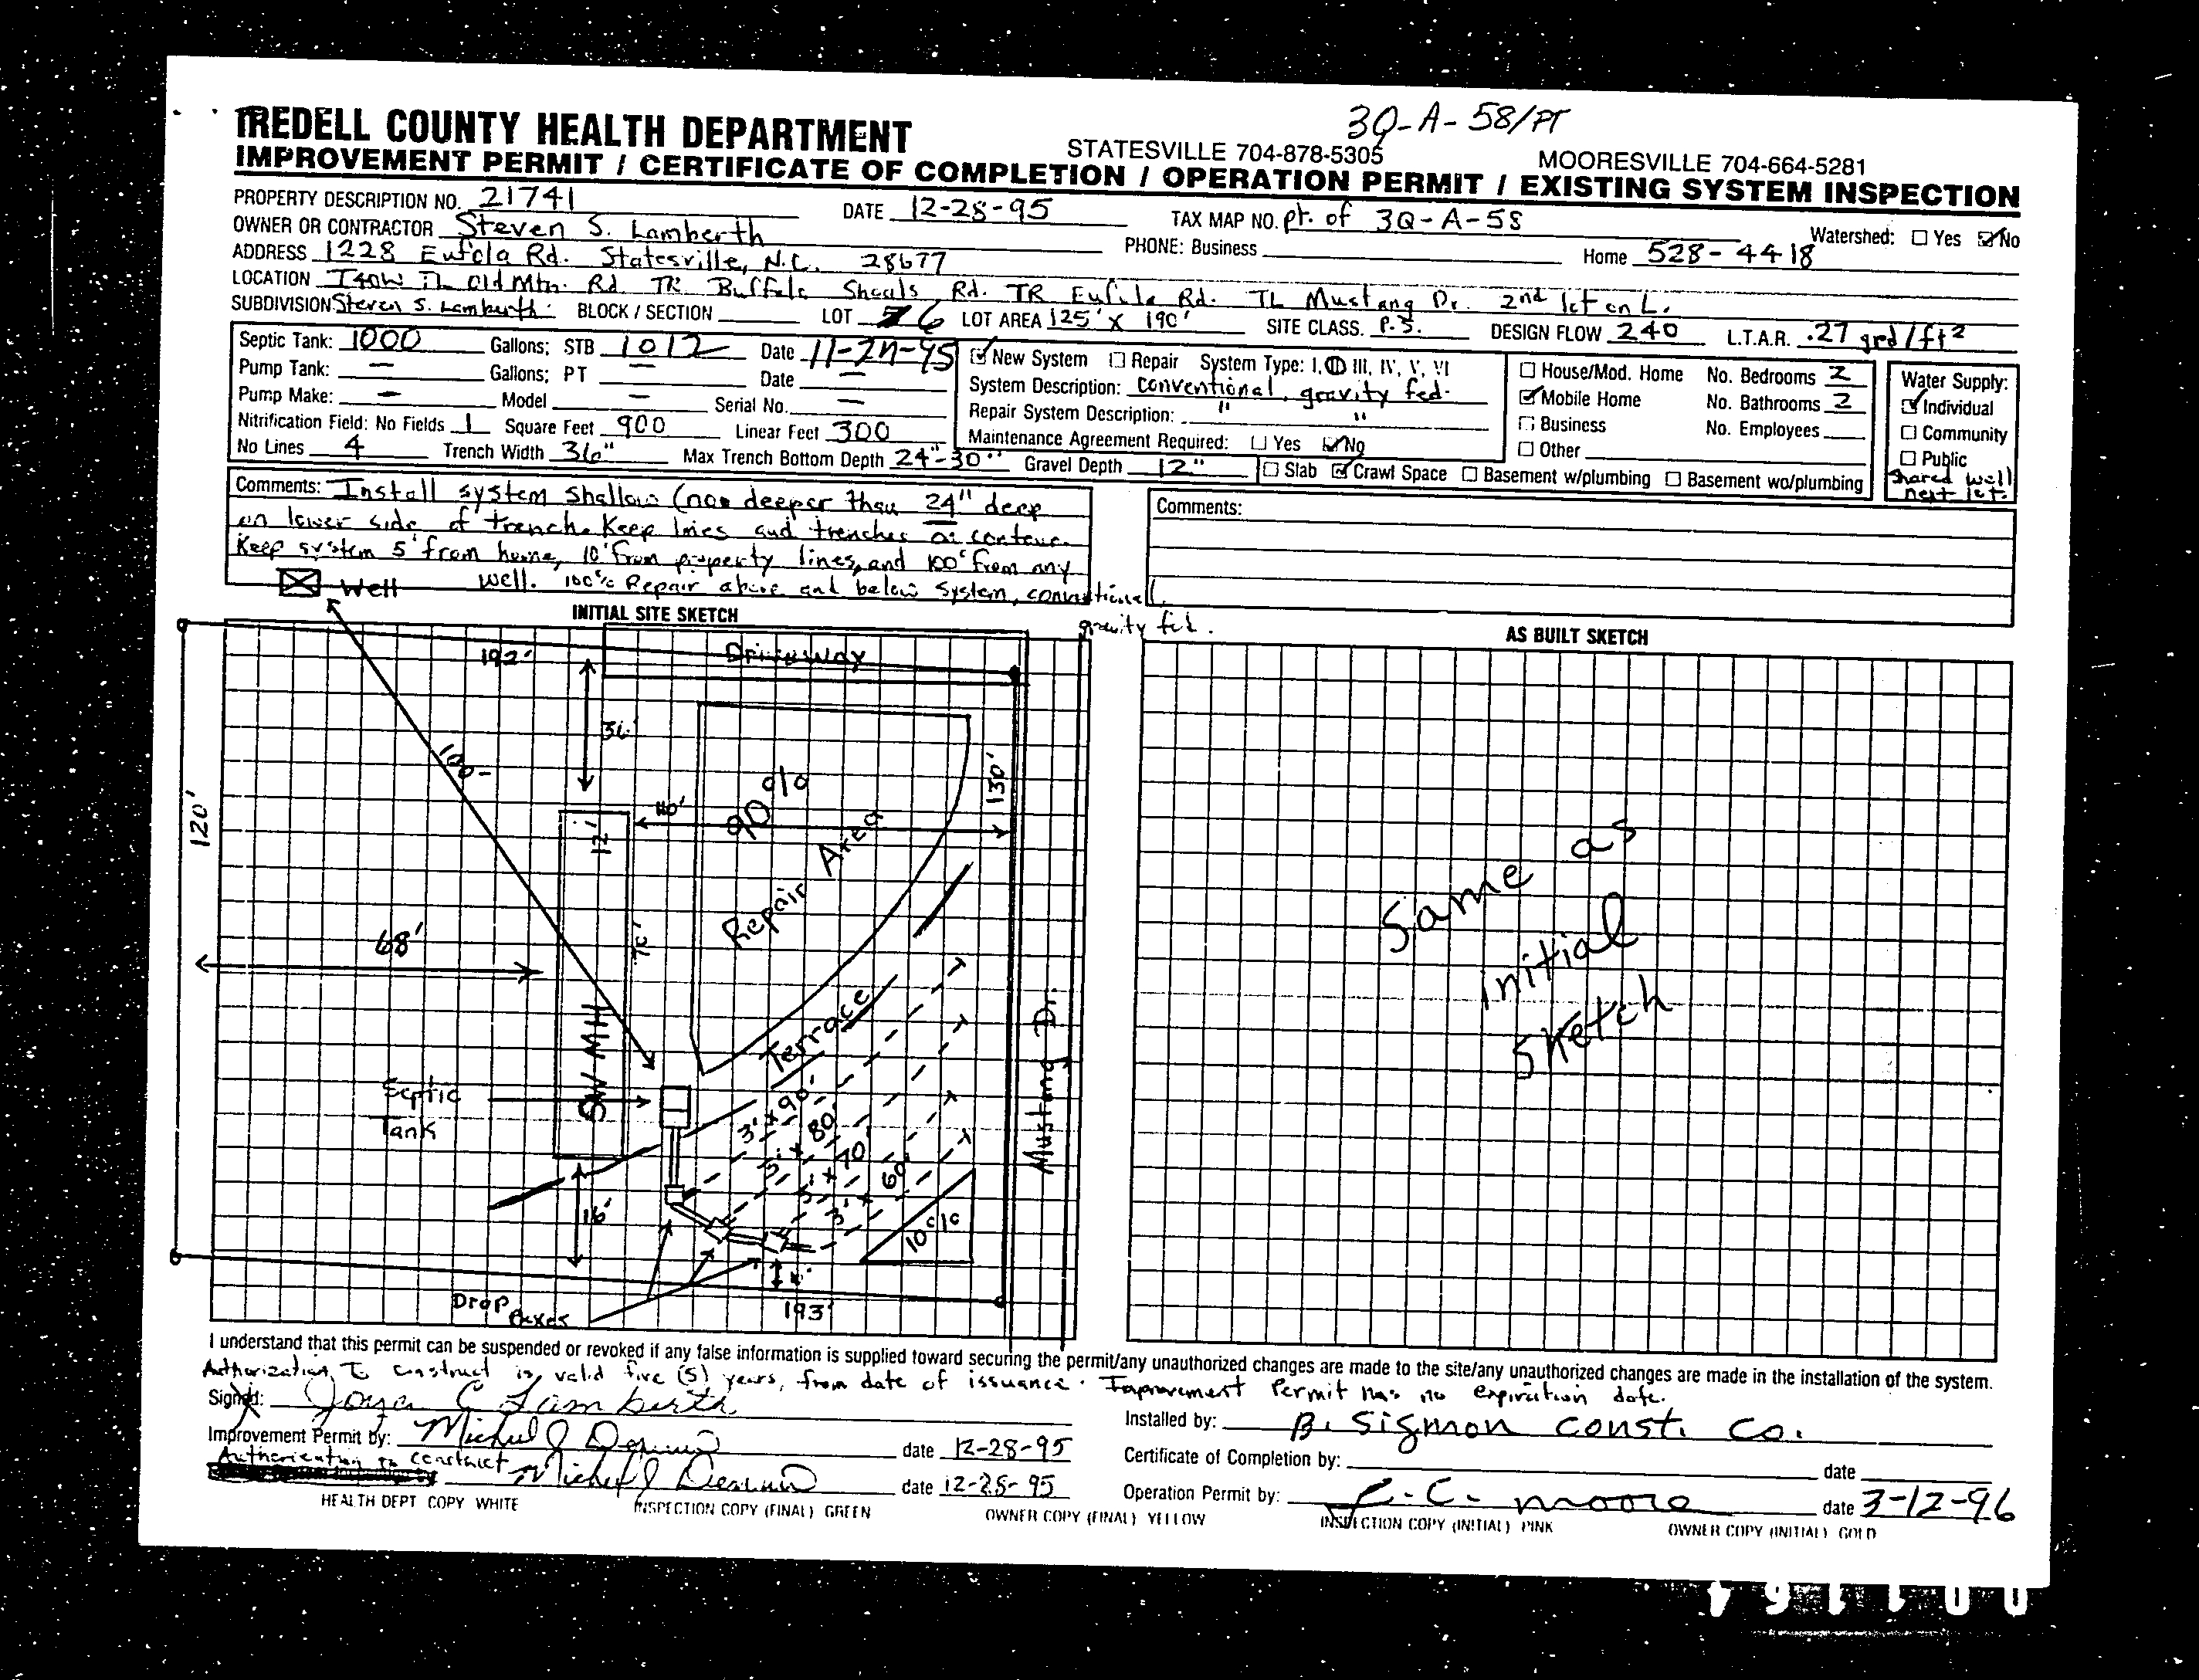 3Q-A-58/PT
IREDELL COUNTY HEALTH DEPARTMENT
STATESVILLE 704-878-5305 MOORESVILLE 704-664-5281
IMPROVEMENT PERMIT / CERTIFICATE OF COMPLETION / OPERATION PERMIT / EXISTING SYSTEM INSPECTION
PROPERTY DESCRIPTION NO. 21741 DATE 12-28-95 TAX MAP NO. pt. of 3Q-A-58 Watershed: Yes No
OWNER OR CONTRACTOR Steven S. Lamberth PHONE: Business Home 528-4418
ADDRESS 1228 Eufola Rd. Statesville, N.C. 28677
LOCATION I40W TL Old Mtn. Rd TR Buffalo Shoals Rd. TR Eufola Rd. TL Mustang Dr. 2nd lot on L.
SUBDIVISION Steven S. Lamberth BLOCK / SECTION LOT 6 LOT AREA 125' X 190' SITE CLASS. P.S. DESIGN FLOW 240 L.T.A.R. .27 gpd/ft2
Septic Tank: 1000 Gallons; STB 1012 Date
Pump Tank: — Gallons; PT — Date —
Pump Make: — Model — Serial No. —
Nitrification Field: No Fields 1 Square Feet 900 Linear Feet 300
No Lines 4 Trench Width 36" Max Trench Bottom Depth 24"-30" Gravel Depth 12"
New System Repair System Type: I, II, III, IV, V, VI
System Description: Conventional, gravity fed.
Repair System Description: " "
Maintenance Agreement Required: Yes No
House/Mod. Home No. Bedrooms 2
Mobile Home No. Bathrooms 2
Business No. Employees
Other
Slab Crawl Space Basement w/plumbing Basement wo/plumbing
Water Supply:
Individual
Community
Public
Shared well
next lot.
Comments: Install system shallow (noe deeper than 24" deep
on lower side of trench. Keep lines and trenches on contour.
Keep system 5' from home, 10' from property lines, and 100' from any
well. 100% Repair above and below system, conventional
gravity fed.
Comments:
Well
INITIAL SITE SKETCH
AS BUILT SKETCH
192'
Driveway
36'
100'
120'
12'
110'
90%
Repair Area
130'
68'
70'
SW MH
Terrace
Mustang Dr.
Septic
Tank
3' x 90'
3' x 80
3' x 70'
3' x 60'
10%
16'
Drop
Boxes
193'
Same as
initial
sketch
I understand that this permit can be suspended or revoked if any false information is supplied toward securing the permit/any unauthorized changes are made to the site/any unauthorized changes are made in the installation of the system.
Authorization To Construct is valid five (5) years, from date of issuance. Improvement Permit has no expiration date.
Signed: Joya C Lamberth
Installed by: B. Sigmon Const. Co.
Improvement Permit by: date 12-28-95
Certificate of Completion by: date
Authorization to construct date 12-28-95
Operation Permit by: C. Moore date 3-12-96
HEALTH DEPT COPY WHITE INSPECTION COPY (FINAL) GREEN OWNER COPY (FINAL) YELLOW INSPECTION COPY (INITIAL) PINK OWNER COPY (INITIAL) GOLD